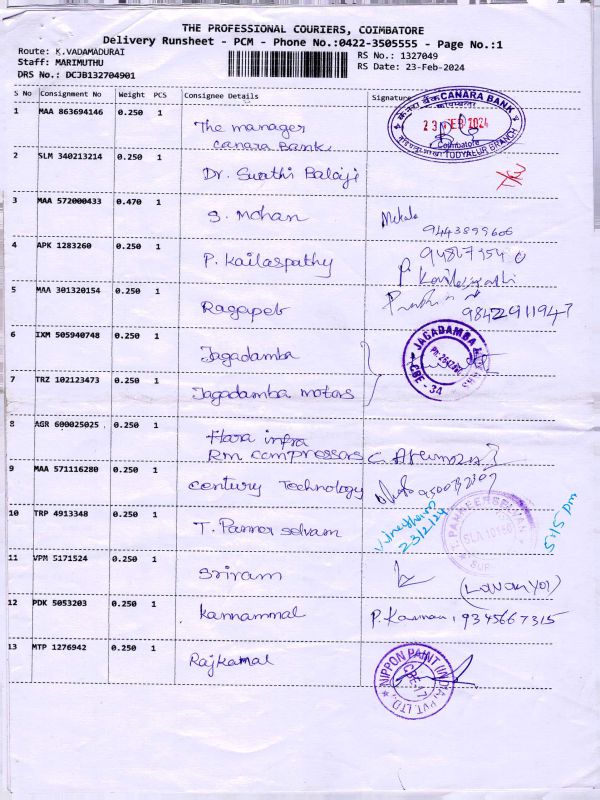 THE PROFESSIONAL COURIERS, COIMBATORE
Delivery Runsheet - PCM - Phone No.:0422-3505555 - Page No.:1
Route: K.VADAMADURAI RS No.: 1327049
Staff: MARIMUTHU RS Date: 23-Feb-2024
DRS No.: DCJB132704901
S No Consignment No Weight PCS Consignee Details Signature
1 MAA 863694146 0.250 1 The manager
canara Bank
CANARA BANK
23 FEB 2024
Coimbatore
TUDIYALUR BRANCH
2 SLM 340213214 0.250 1 Dr. Swathi Balaji
3 MAA 572000433 0.470 1 S. Mohan Mekala
9443899606
4 APK 1283260 0.250 1 P. Kailaspathy
5 MAA 301320154 0.250 1 Ragapeb
98422911947
6 IXM 505940748 0.250 1 Jagadamba
JAGADAMBA
CBE - 34
7 TRZ 102123473 0.250 1 Jagadamba motors
8 AGR 600025025 0.250 1 Hara infra
Rm compressors
9 MAA 571116280 0.250 1 century Technology
10 TRP 4913348 0.250 1 T. Panner selvam
23/2/24
5:15 pm
11 VPM 5171524 0.250 1 Sriram
12 PDK 5053203 0.250 1 kannammal P. Kannan, 9345667315
13 MTP 1276942 0.250 1 Rajkamal
NIPPON PAINT (INDIA) PVT. LTD.
CBE-17